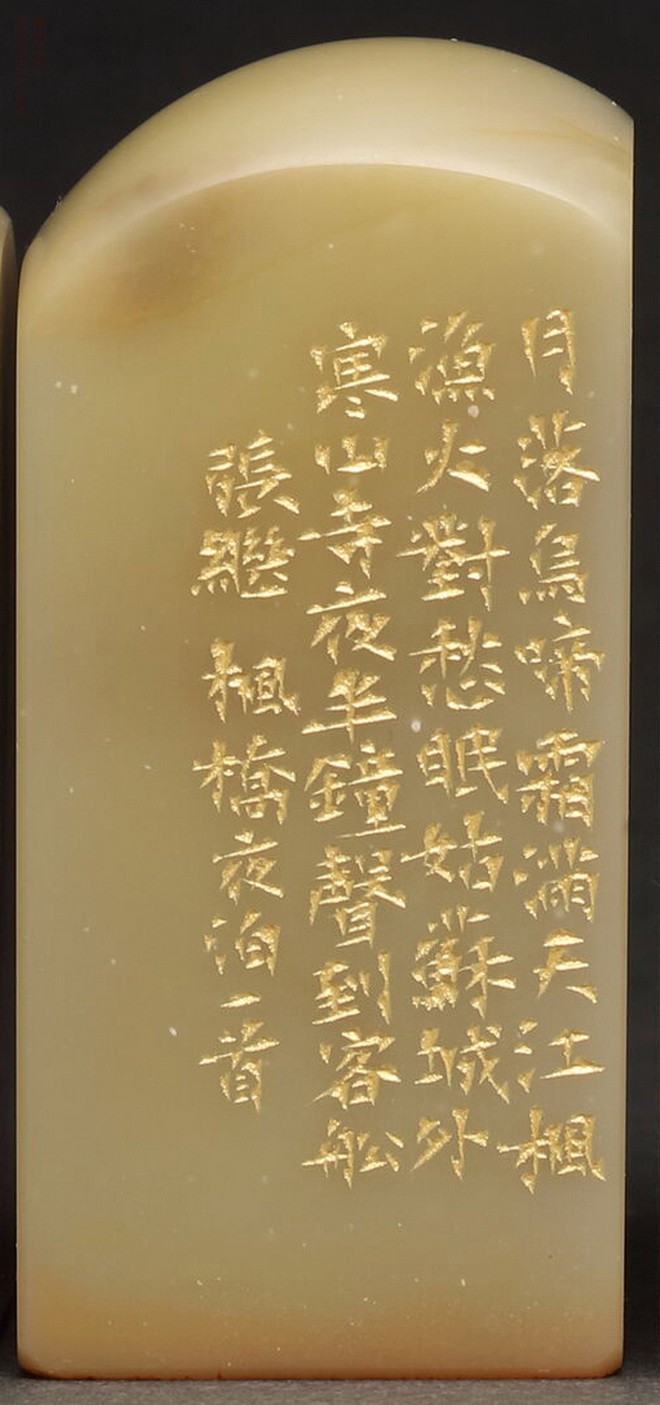 月落烏啼霜滿天江楓
漁火對愁眠姑蘇城外
寒山寺夜半鐘聲到客船
張繼 楓橋夜泊一首